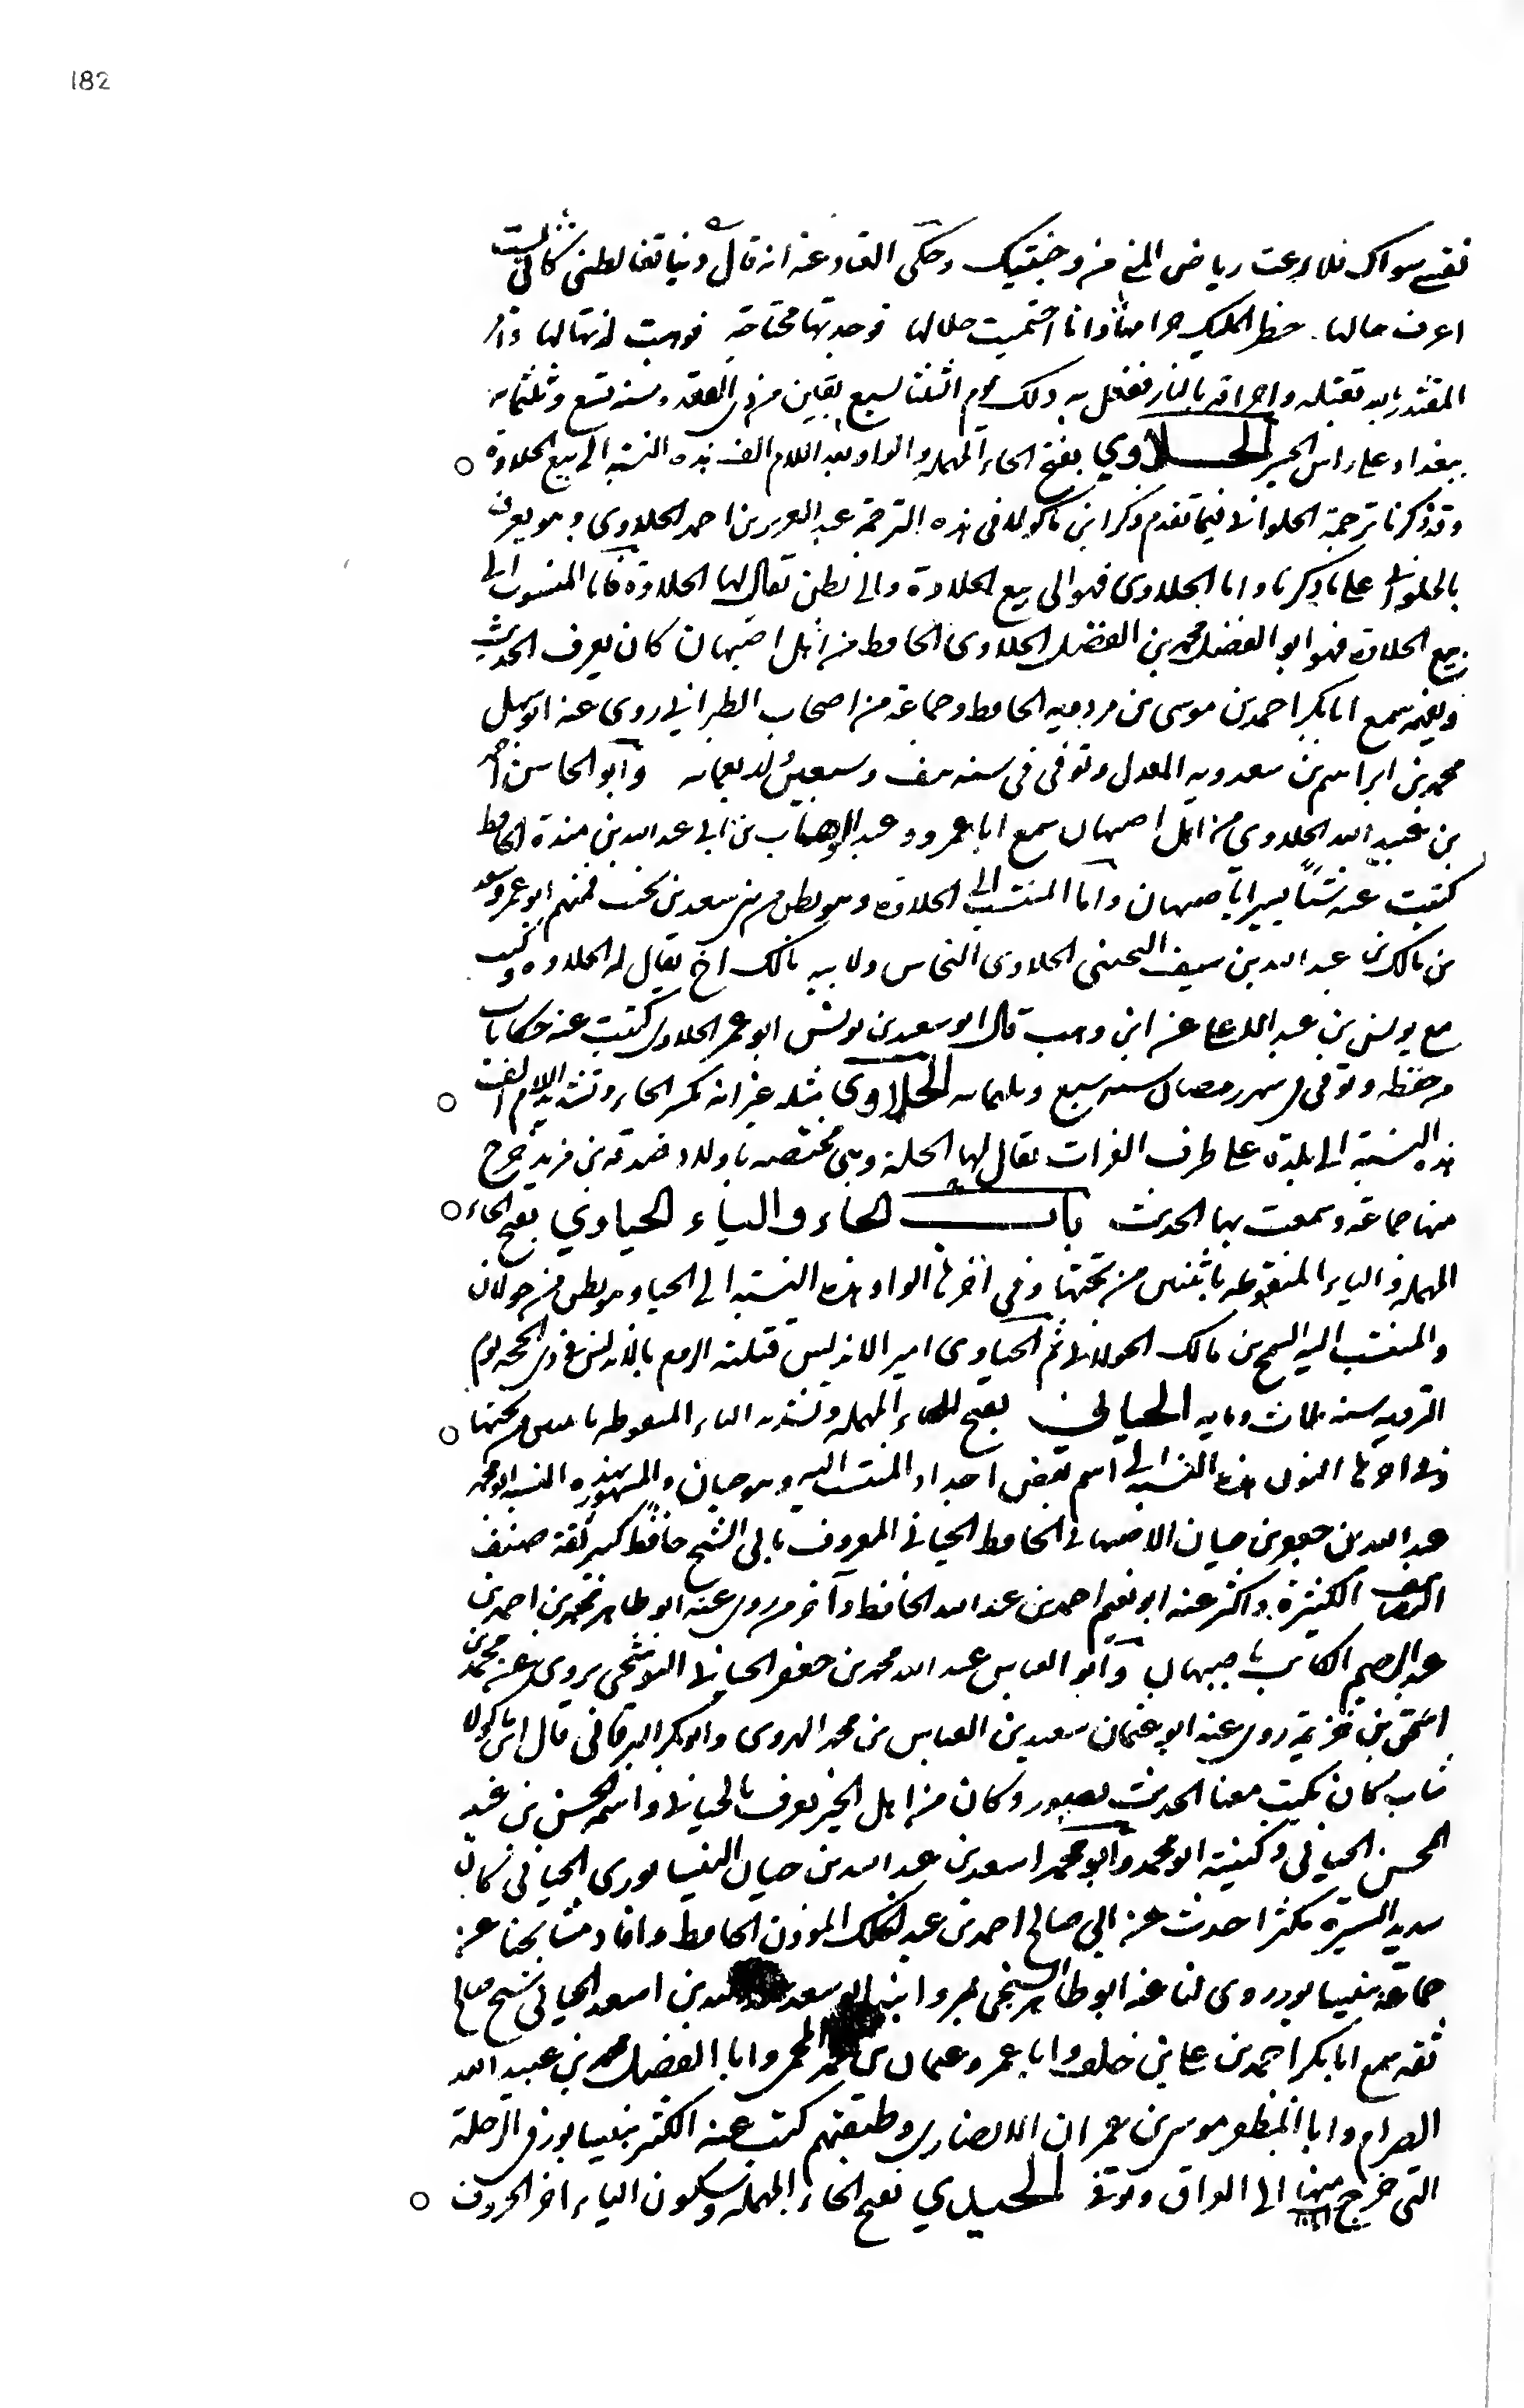 182
نفسي سواك فلا رعت رياض المنى من وجنتيك وحكى القناد عنه انه قال دنيا تغالطني كأني لست
اعرف حالها حظر المليك حرامها وانا احتميت حلالها فوجدتها محتاجة فوهبت لذتها لها وامر
المقتدر بالله بقتله واحراقه بالنار ففعل به ذلك يوم الثلثا لسبع بقين من ذى القعدة سنه تسع وثلثمايه
ببغداد على راس الجسر الحلاوي بفتح الحاء المهمله والواو بعد اللام الف هذه النسبه الى بيع الحلاوة
وقد ذكرنا ترجمة الحلوانى فيما تقدم وذكر ابن ماكولا فى هذه الترجمة عبد العزيز بن احمد الحلاوى وهو يعرف
بالحلوانى على ما ذكرنا واما الحلاوى فهو الى بيع الحلاوة والى بطن يقال لها الحلاوة فاما المنسوب الى
بيع الحلاوة فهو ابو الفضل محمد بن الفضل الحلاوى الحافظ من اهل اصبهان كان يعرف الحديث
ويفهمه سمع ابا بكر احمد بن موسى بن مردويه الحافظ وجماعة من اصحاب الطبرانى روى عنه ابو سهل
محمد بن ابراهيم بن سعدويه المعدل وتوفى فى سنه نيف وسبعين واربعمايه وابو المحاسن
بن عبيد الله الحلاوي من اهل اصبهان سمع ابا عمرو عبد الوهاب بن ابى عبد الله بن مندة الحافظ
كتبت عنه شيئا يسيرا باصبهان واما المنتسب الى الحلاوة وهو بطن من سعد بن تجيب فمنهم ابو عمرو سعد
بن مالك بن عبد الله بن سيف التجيبى الحلاوى النخاس ولابيه مالك اخ يقال له الحلاوه وكتب
مع يونس بن عبد الاعلى عن ابن وهب قال ابو سعيد بن يونس ابو عمر الحلاوى كتبت عنه حكايات
من حفظه وتوفى فى شهر رمضان سنه سبع وثلثمايه الحلاوي مثله غير انه بكسر الحاء وتشديد اللام الف
هذه النسبة الى بلدة على طرف الفرات يقال لها الحلة وهى مختصه باولاد صدقه بن مزيد خرج
منها جماعه وسمعت بها الحديث باب الحاء والياء الحياوي بفتح الحاء
المهمله والياء المنقوطه باثنتين من تحتها وفى اخرها الواو هذه النسبة الى الحيا وهو بطن من خولان
والمنتسب اليه السمح بن مالك الخولانى ثم الحياوى امير الاندلس قتلته الروم بالاندلس فى ذى الحجه يوم
الترويه سنه ثلاث ومايه الحياني بفتح الحاء المهمله وتشديد الياء المنقوطه باثنتين من تحتها
وفى اخرها النون هذه النسبه الى اسم لبعض اجداد المنتسب اليه وهو حيان والمشهور بهذه النسبه ابو محمد
عبد الله بن جعفر بن حيان الاصبهانى الحافظ الحيانى المعروف بابى الشيخ حافظ كبير ثقة صنف
التصانيف الكثيرة واكثر عنه ابو نعيم احمد بن عبد الله الحافظ واخر من روى عنه ابو طاهر محمد بن احمد بن
عبد الرحيم الكاتب باصبهان وابو العباس عبد الله محمد بن جعفر الحيانى البوشنجى يروى عن محمد بن
اسحق بن خزيمة روى عنه ابو عثمان سعيد بن العباس بن محمد الهروى وابو بكر البرقانى قال ابن ماكولا
شاب كان يكتب معنا الحديث بصور وكان من اهل الخير يعرف بالحيانى واسمه الحسن بن عبد
المحسن الحيانى وكنيته ابو محمد وابو محمد اسعد بن عبد الله بن حيان النيسابورى الحيانى كان
سديد السيرة مكثرا حدث عن ابى صالح احمد بن عبد الملك المؤذن الحافظ وافاد مشايخنا عن
جماعة بنيسابور روى لنا عنه ابو طاهر السنجى بمرو وابنه ابو سعد بن اسعد الحيانى شيخ صالح
ثقه سمع ابا بكر احمد بن على بن خلف وابا عمرو عثمان بن محمد المحمى وابا الفضل محمد بن عبيد الله
الصرام وابا المظفر موسى بن عمران الانصارى وطبقتهم كتبت عنه الكثير بنيسابور فى الرحلة
التى خرج منها الى العراق وتوفى الحيدي بفتح الحاء المهمله وسكون الياء اخر الحروف